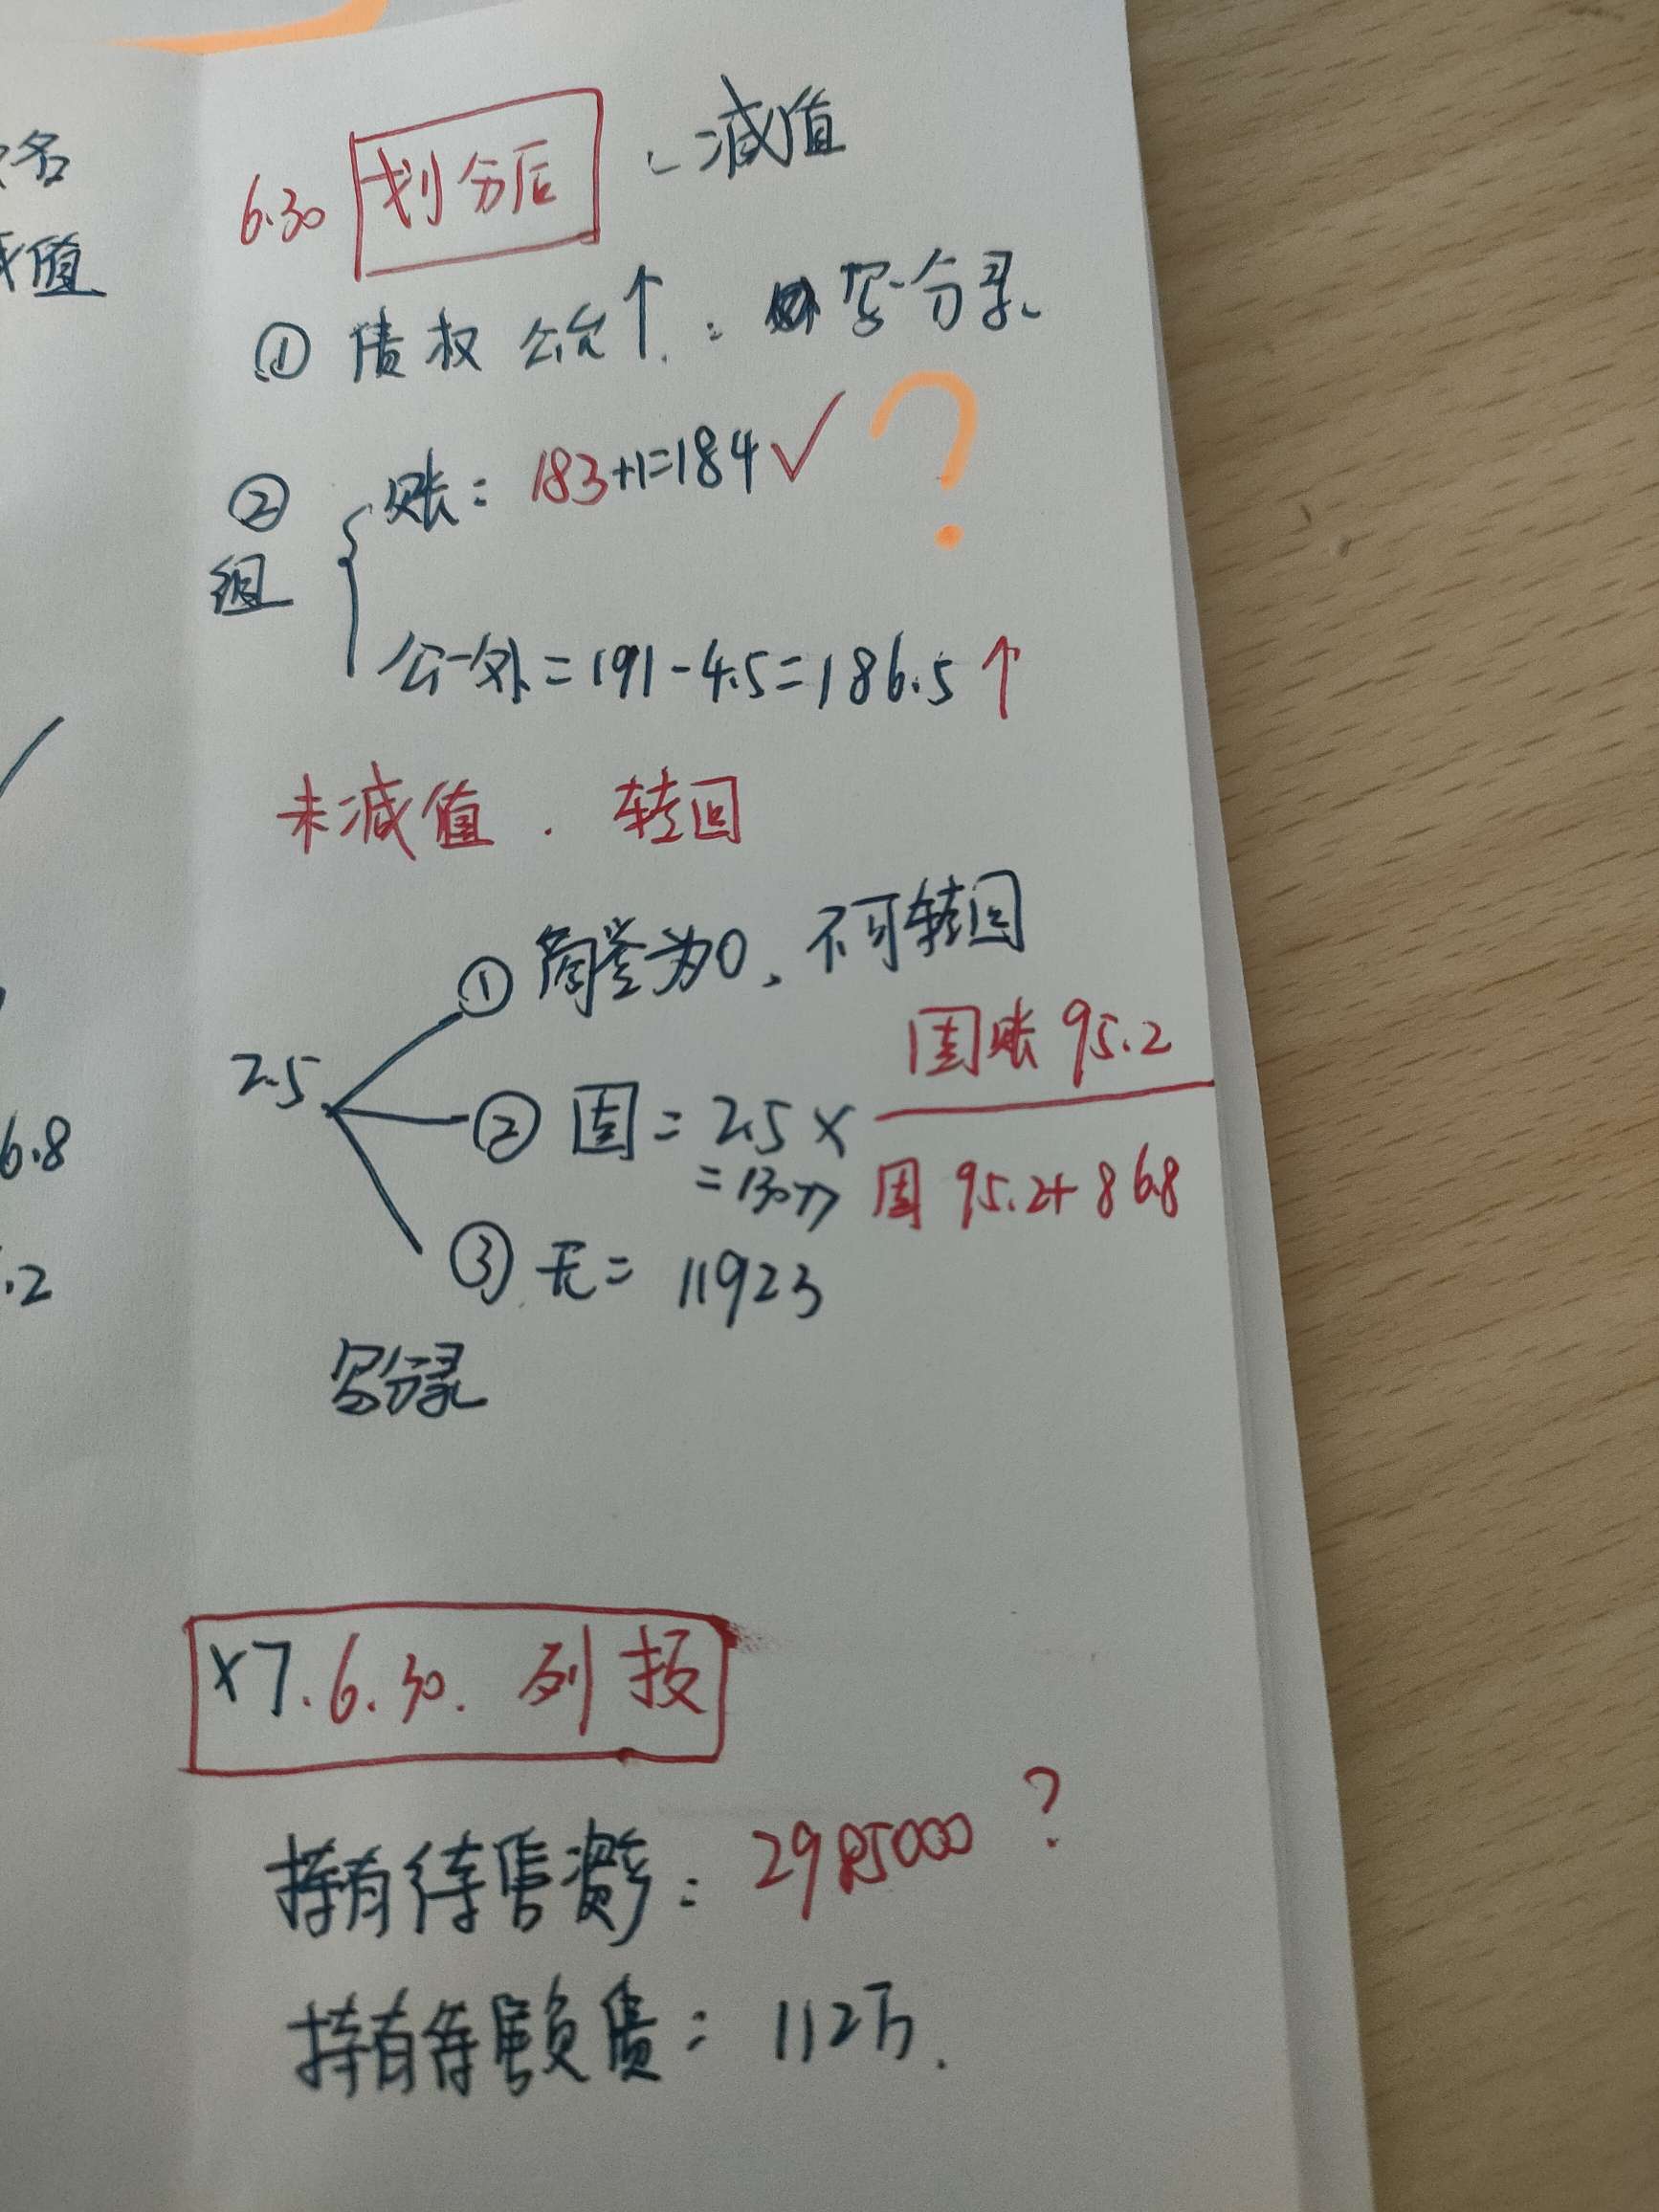 名
减值
6.8
.2
6.30 划分后、减值
① 债权 公允↑. : 写分录、
② 组
账: 183+1=184✓ ?
公-处=191-4.5=186.5↑
未减值. 转回
2.5
① 商誉为0、不可转回
② 固= 2.5× 固账 95.2
固 95.2+86.8
=13077
③ 无= 11923
写分录
X7.6.30. 列报
持有待售资产: 2985000 ?
持有待售负债: 112万.